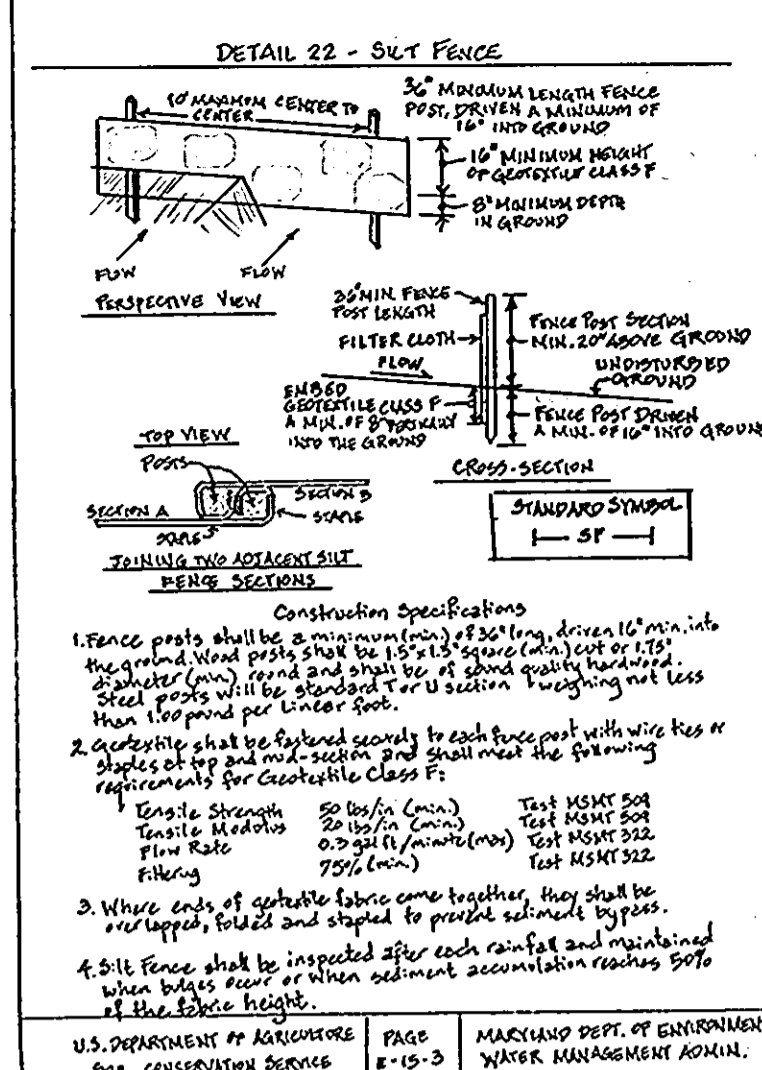 DETAIL 22 - SILT FENCE
10' MAXIMUM CENTER TO
CENTER
36" MINIMUM LENGTH FENCE
POST, DRIVEN A MINIMUM OF
16" INTO GROUND
16" MINIMUM HEIGHT
OF GEOTEXTILE CLASS F
8" MINIMUM DEPTH
IN GROUND
FLOW
FLOW
PERSPECTIVE VIEW
36" MIN. FENCE
POST LENGTH
FILTER CLOTH
FLOW
FENCE POST SECTION
MIN. 20" ABOVE GROUND
UNDISTURBED
GROUND
EMBED
GEOTEXTILE CLASS F
A MIN. OF 8" VERTICALLY
INTO THE GROUND
FENCE POST DRIVEN
A MIN. OF 16" INTO GROUND
CROSS-SECTION
TOP VIEW
POSTS
SECTION A
SECTION B
STAPLE
STAPLE
JOINING TWO ADJACENT SILT
FENCE SECTIONS
STANDARD SYMBOL
SF
Construction Specifications
1. Fence posts shall be a minimum (min.) of 36" long, driven 16" min. into
the ground. Wood posts shall be 1.5" x 1.5" square (min.) cut or 1.75"
diameter (min) round and shall be of sound quality hardwood.
Steel posts will be standard T or U section weighing not less
than 1.00 pound per linear foot.
2. Geotextile shall be fastened securely to each fence post with wire ties or
staples at top and mid-section and shall meet the following
requirements for Geotextile Class F:
Tensile Strength 50 lbs/in (min.) Test MSMT 509
Tensile Modulus 20 lbs/in (min.) Test MSMT 509
Flow Rate 0.3 gal ft/minute (max) Test MSMT 322
Filtering 75% (min.) Test MSMT 322
3. Where ends of geotextile fabric come together, they shall be
overlapped, folded and stapled to prevent sediment bypass.
4. Silt Fence shall be inspected after each rainfall and maintained
when bulges occur or when sediment accumulation reaches 50%
of the fabric height.
U.S. DEPARTMENT OF AGRICULTURE
CONSERVATION SERVICE
PAGE
E-15-3
MARYLAND DEPT. OF ENVIRONMEN
WATER MANAGEMENT ADMIN.